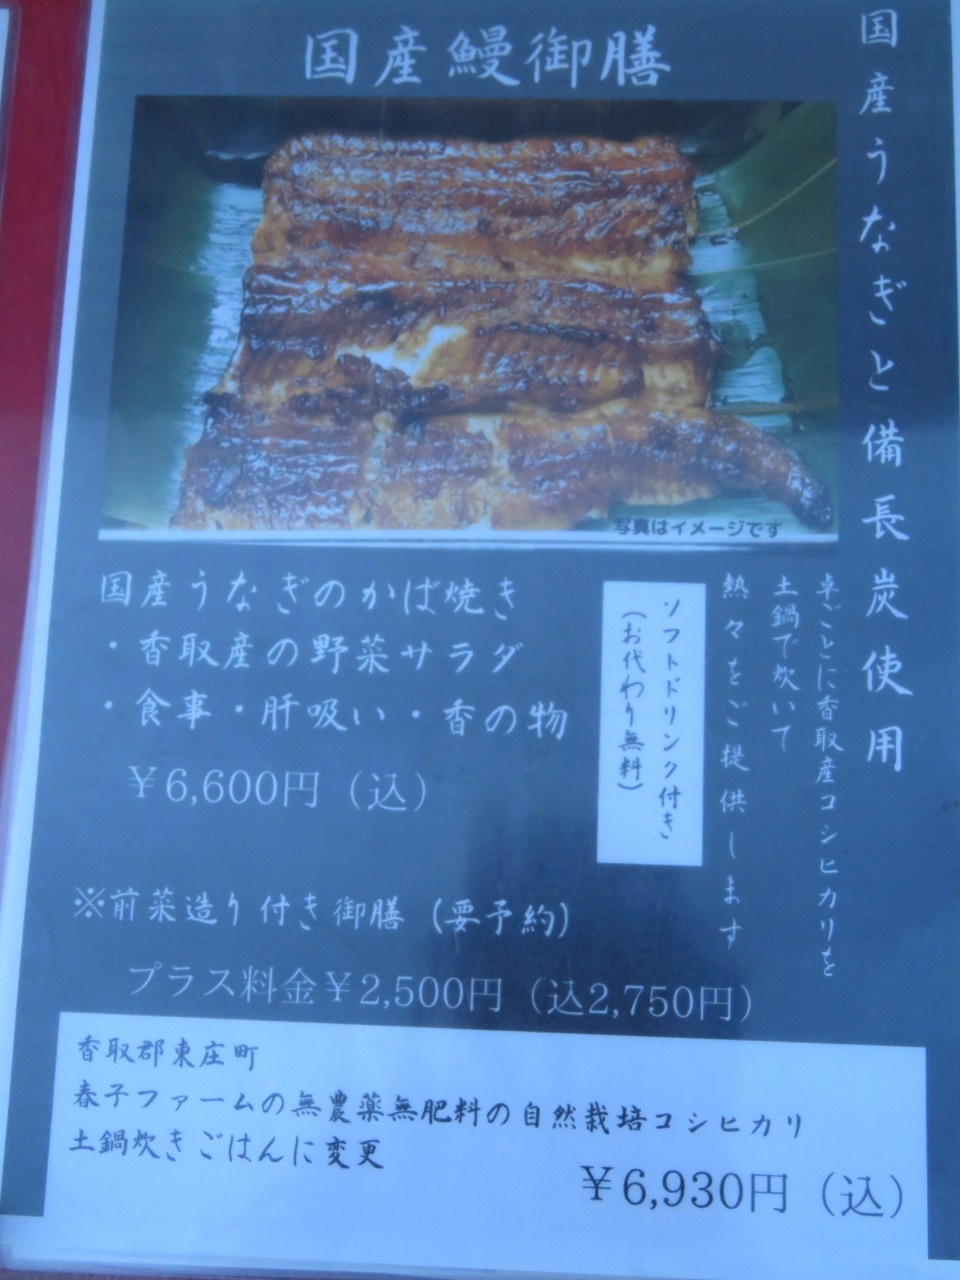 国産鰻御膳
国産うなぎと備長炭使用
写真はイメージです
卓ごとに香取産コシヒカリを
土鍋で炊いて
熱々をご提供します
ソフトドリンク付き
(お代わり無料)
国産うなぎのかば焼き
・香取産の野菜サラダ
・食事・肝吸い・香の物
￥6,600円（込）
※前菜造り付き御膳（要予約）
プラス料金￥2,500円（込2,750円）
香取郡東庄町
春子ファームの無農薬無肥料の自然栽培コシヒカリ
土鍋炊きごはんに変更
￥6,930円（込）